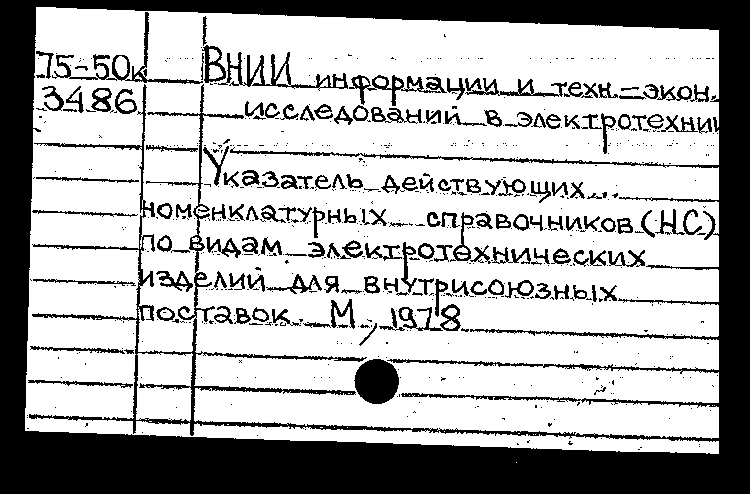 75-50к ВНИИ информации и техн.-экон.
3486 исследований в электротехни
Указатель действующих...
номенклатурных справочников (НС)
по видам электротехнических
изделий для внутрисоюзных
поставок. М., 1978